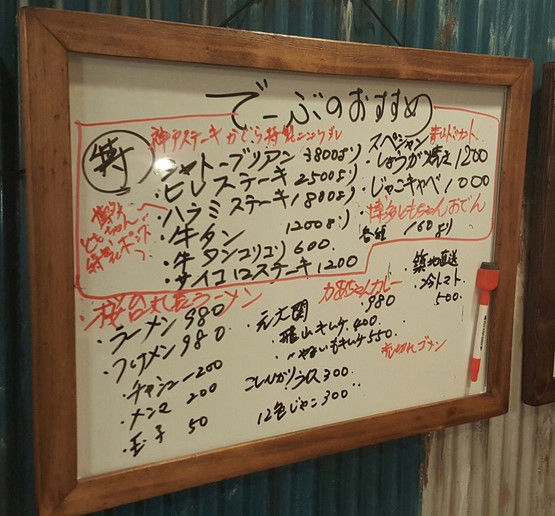 でーぶのおすすめ
特
神戸ステーキ かぐら特製にんにくダレ
シャトーブリアン 3800より
ヒレステーキ 2500より
ハラミステーキ 1800より
牛タン 1200より
牛タンコリコリ 600.
サイコロステーキ 1200
博多
ともちゃん
特製ポン
スペシャル
しょうが焼き 1200
じゃこキャベ 1000
博多ともちゃんおでん
各種 160より
桜台丸長ラーメン
ラーメン 980
つけメン 980
チャシュー 200
メンマ 200
玉子 50
元大関
力あちゃんカレー
980
雅山キムチ 400
〃やまいもキムチ 550
売切れゴメン
こしひかりライス 300.
12色じゃこ 300
築地直送
冷トマト
500.